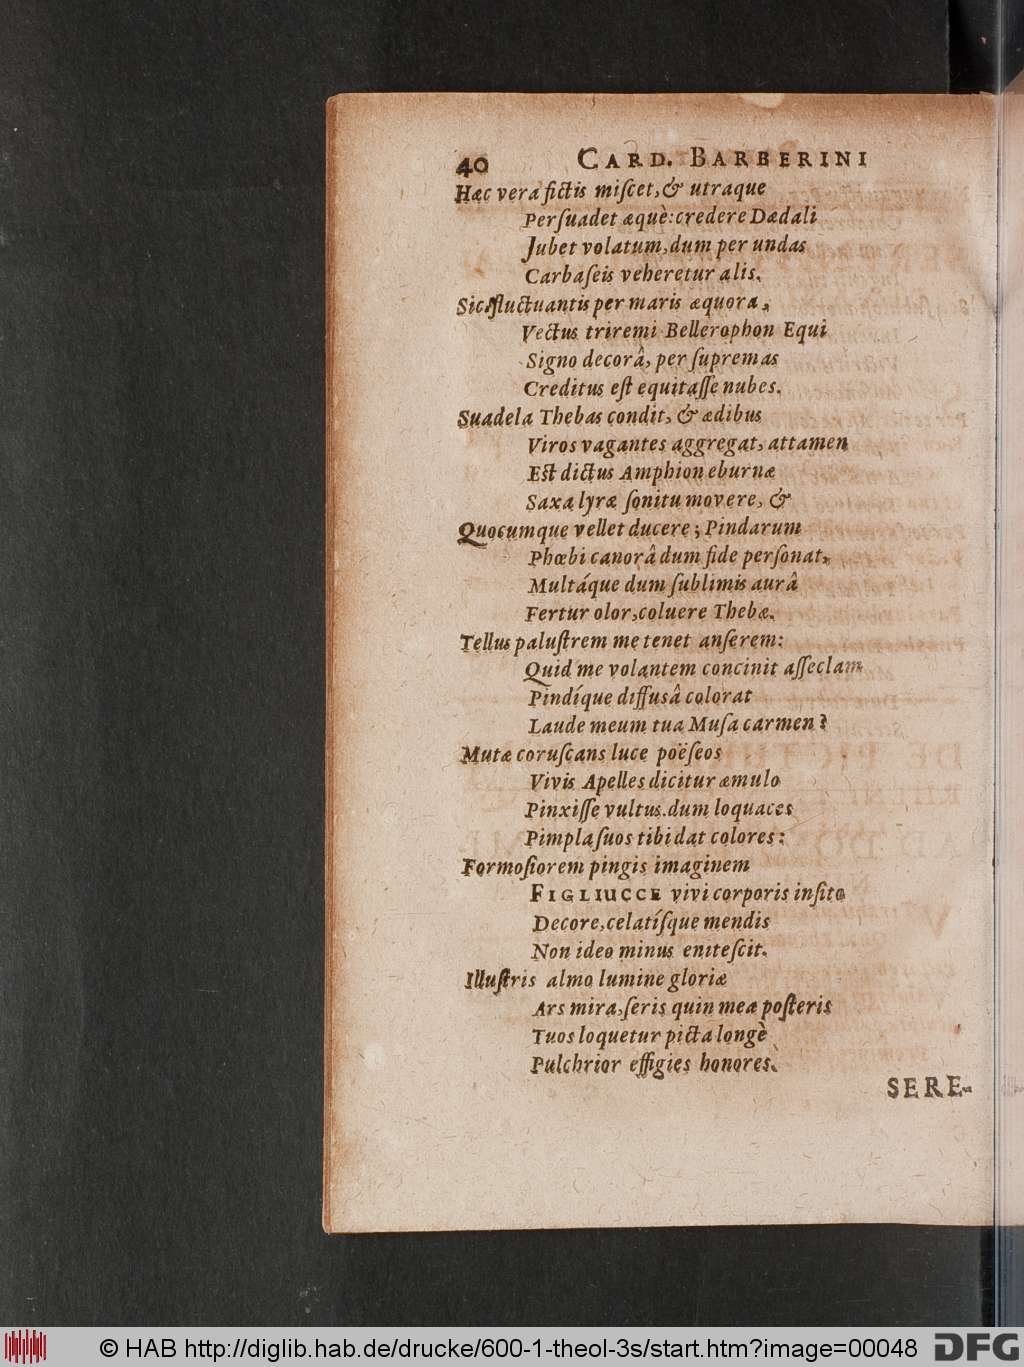 40 CARD. BARBERINI
Hæc vera fictis miſcet, & utraque
Perſuadet æquè: credere Dædali
Jubet volatum, dum per undas
Carbaſeis veheretur alis.
Sic fluctuantis per maris æquora,
Vectus triremi Bellerophon Equi
Signo decorâ, per ſupremas
Creditus eſt equitaſſe nubes.
Suadela Thebas condit, & ædibus
Viros vagantes aggregat, attamen
Eſt dictus Amphion eburnæ
Saxa lyræ ſonitu movere, &
Quocumque vellet ducere; Pindarum
Phœbi canorâ dum fide perſonat,
Multáque dum ſublimis aurâ
Fertur olor, coluere Thebæ.
Tellus paluſtrem me tenet anſerem:
Quid me volantem concinit aſſeclam
Pindíque diffusâ colorat
Laude meum tua Muſa carmen?
Mutæ coruſcans luce poëſeos
Vivis Apelles dicitur æmulo
Pinxiſſe vultus. dum loquaces
Pimpla ſuos tibi dat colores:
Formoſiorem pingis imaginem
FIGLIUCCE vivi corporis inſito
Decore, celatíſque mendis
Non ideo minus eniteſcit.
Illuſtris almo lumine gloriæ
Ars mira, ſeris quin meæ poſteris
Tuos loquetur picta longè
Pulchrior effigies honores.
SERE-
© HAB http://diglib.hab.de/drucke/600-1-theol-3s/start.htm?image=00048
DFG